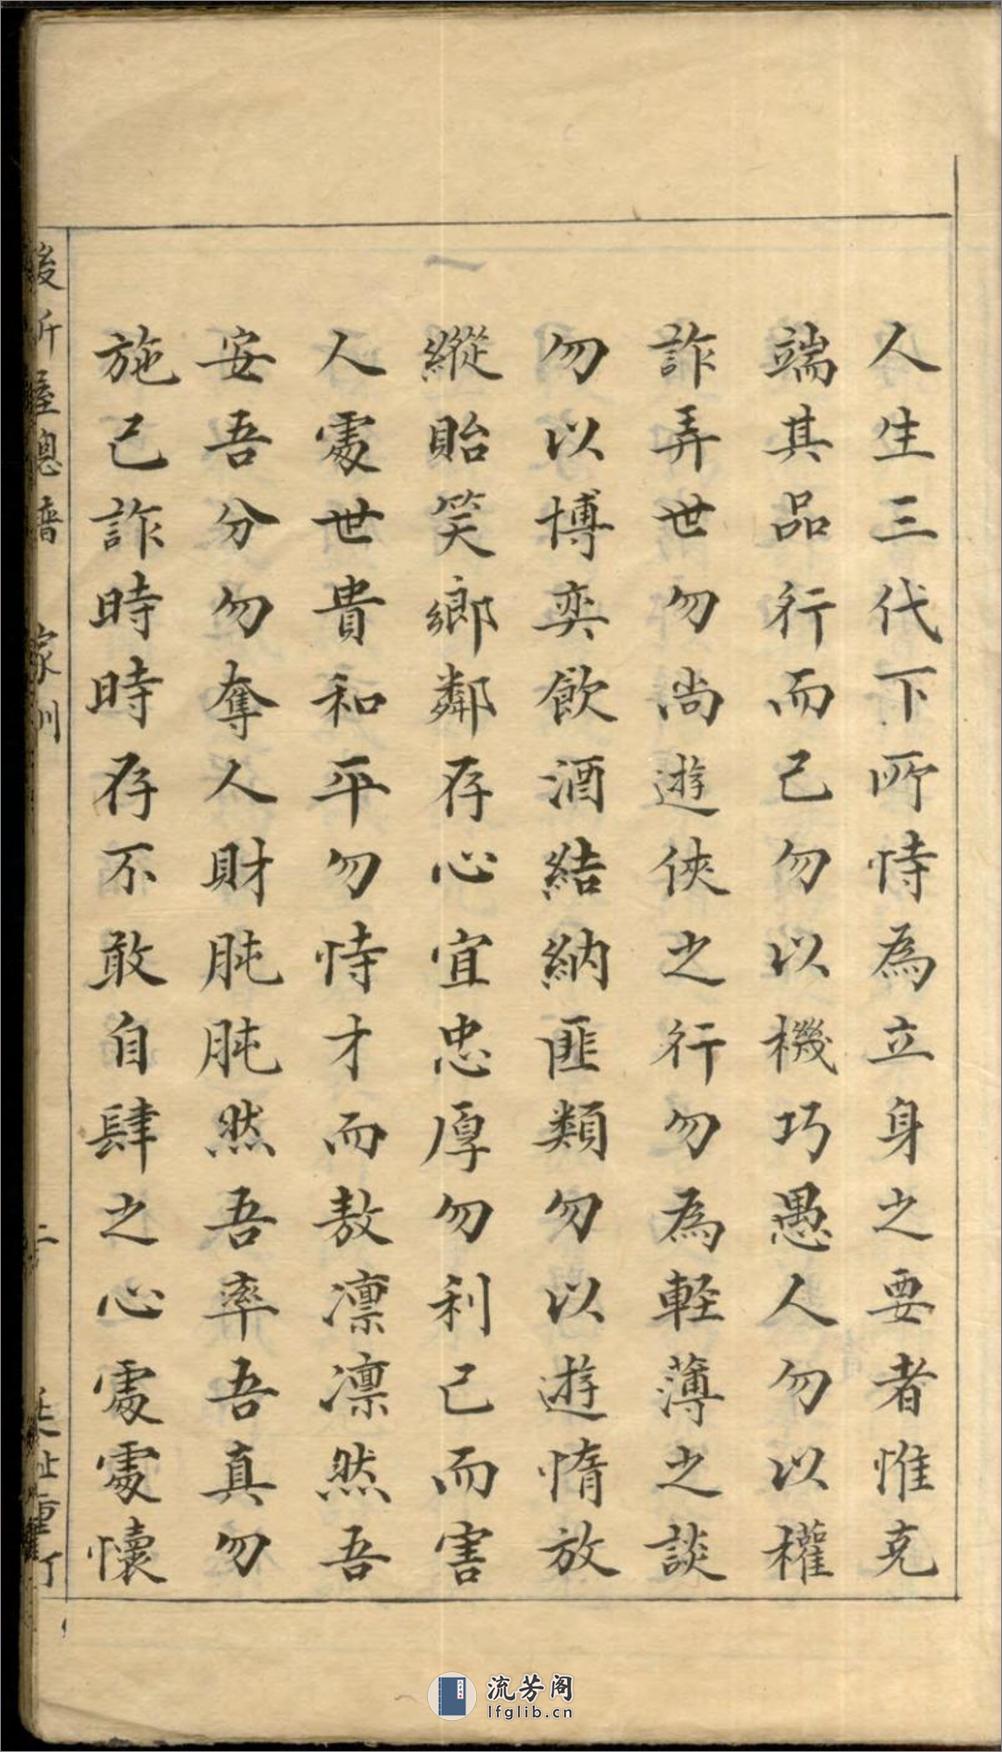 人生三代下所恃為立身之要者惟克
端其品行而已勿以機巧愚人勿以權
詐弄世勿尚遊俠之行勿為輕薄之談
勿以博奕飲酒結納匪類勿以遊惰放
縱貽笑鄉鄰存心宜忠厚勿利己而害
人處世貴和平勿恃才而敖凛凛然吾
安吾分勿奪人財肫肫然吾率吾真勿
施己詐時時存不敢自肆之心處處懷
家訓
重訂
流芳阁
lfglib.cn